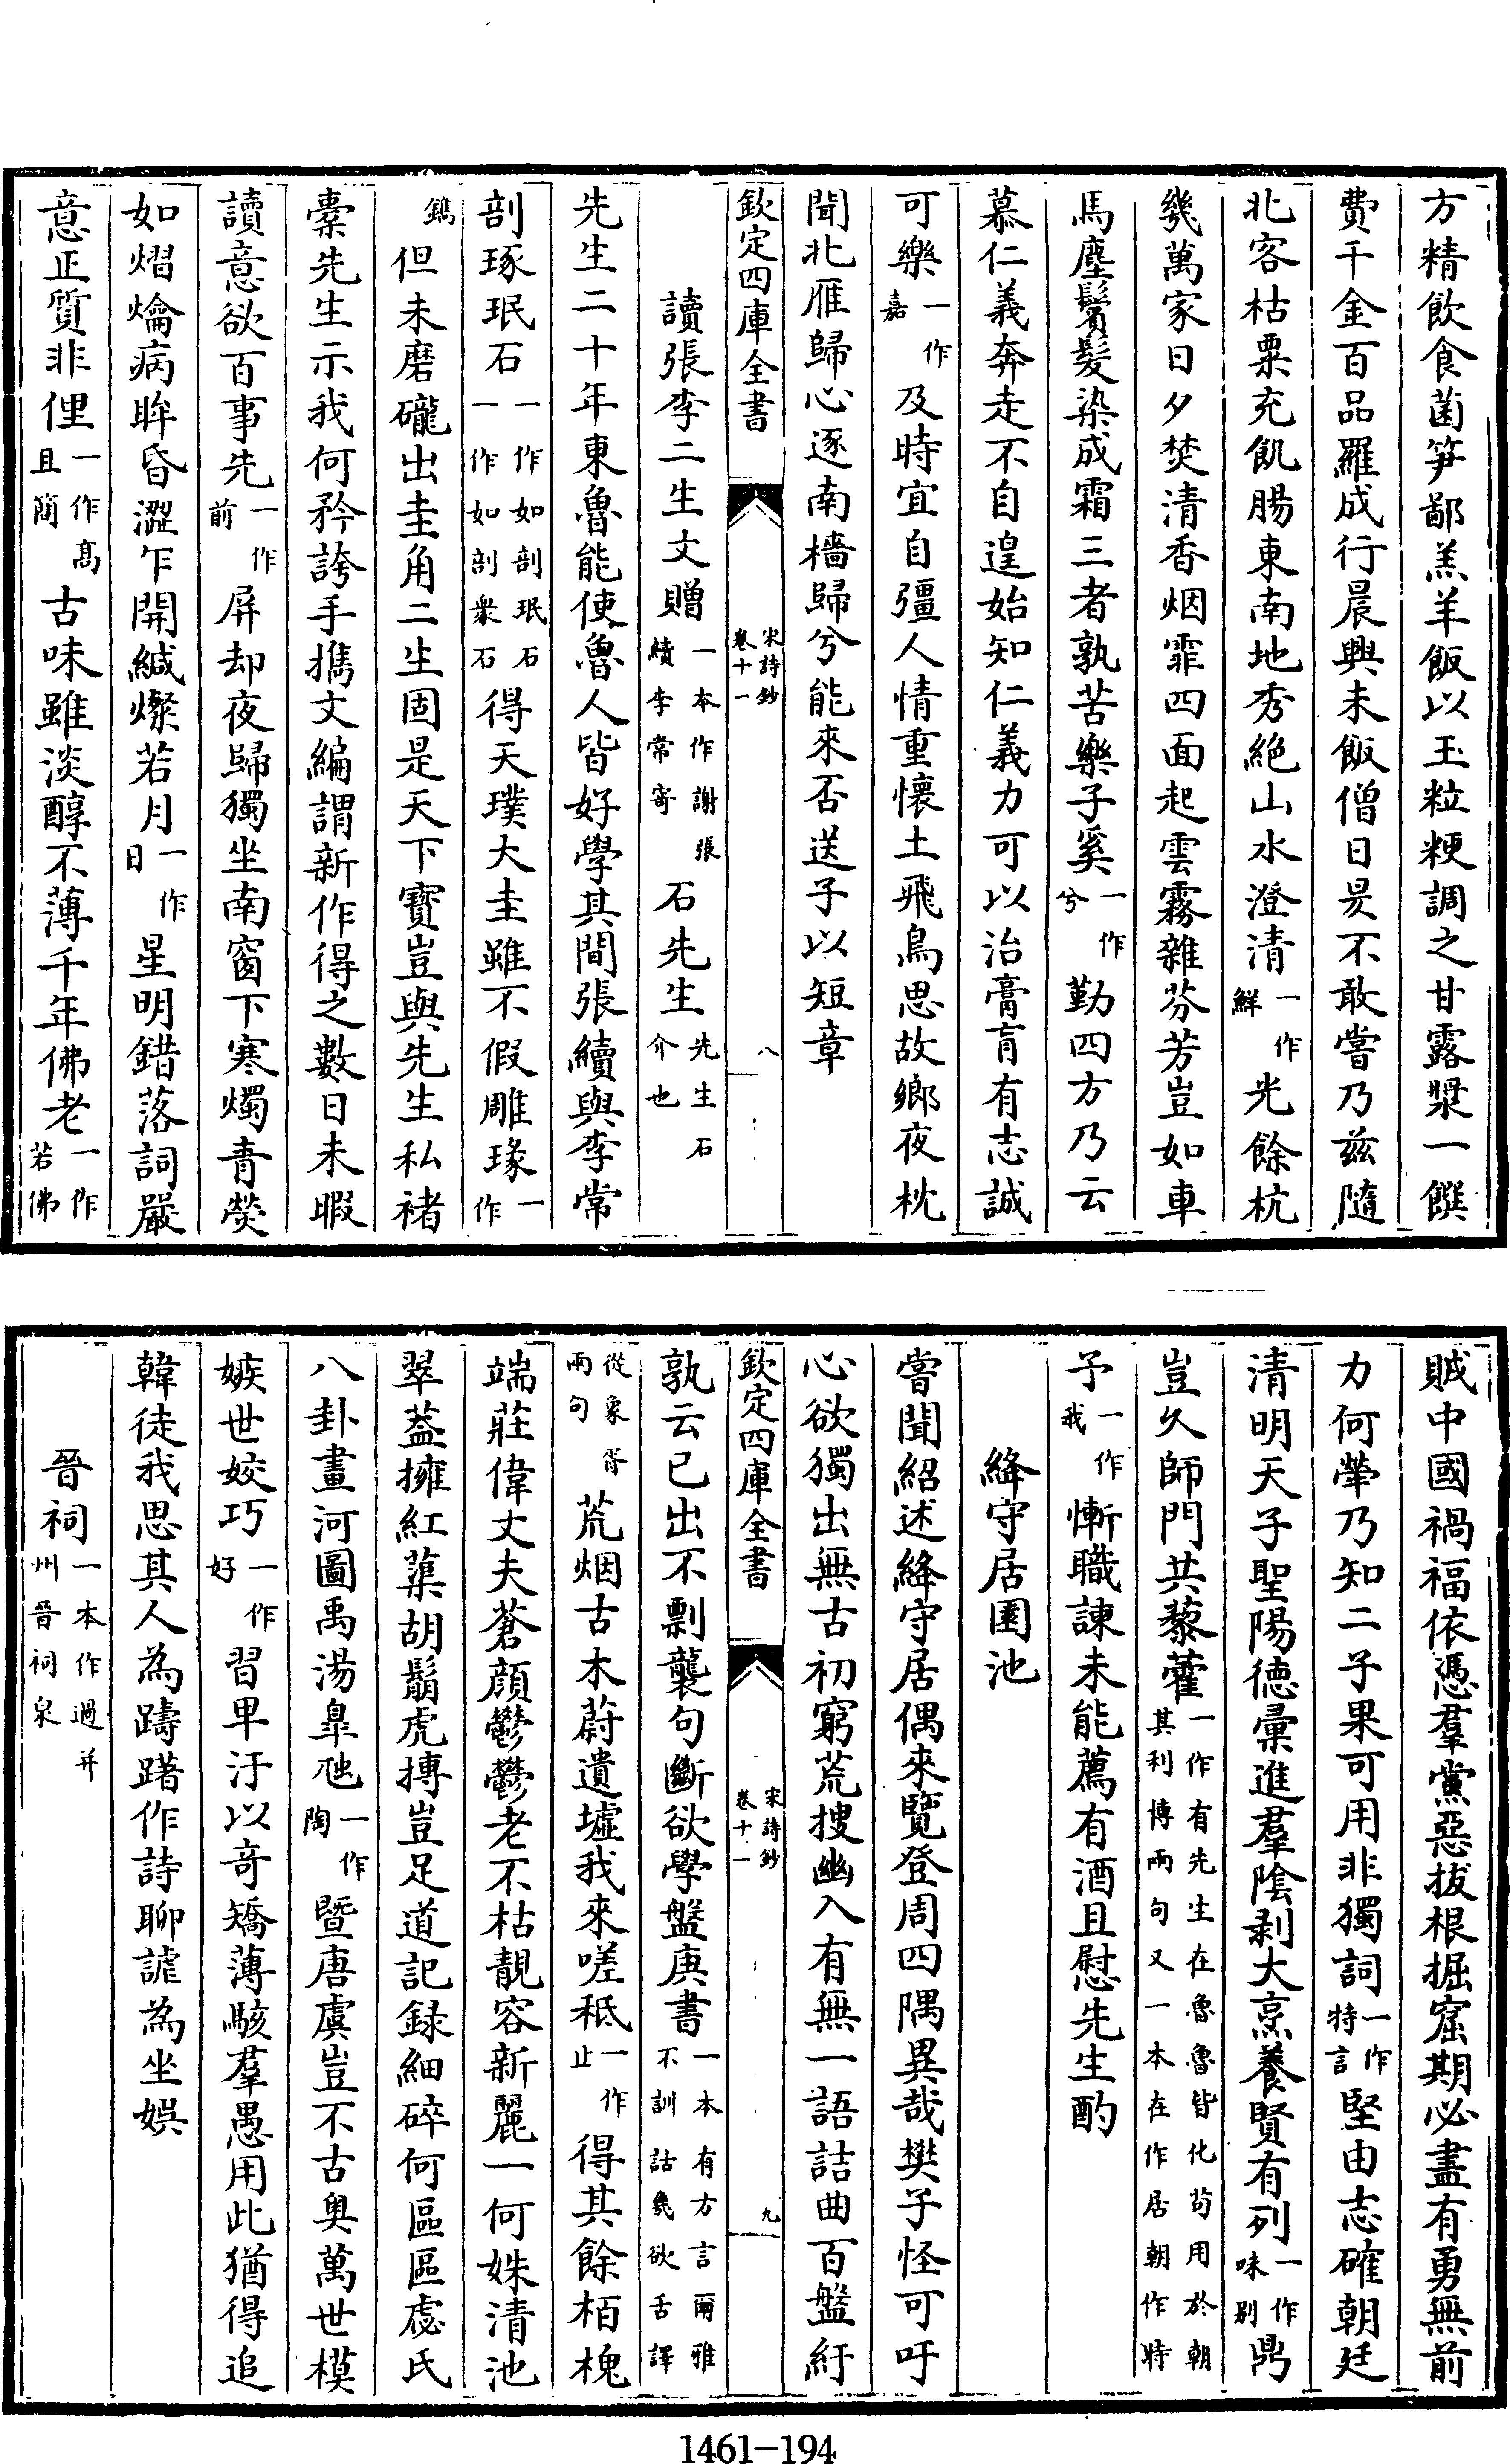 方精飲食菌笋鄙羔羊飯以玉粒粳調之甘露漿一饌
費千金百品羅成行晨興未飯僧日昃不敢嘗乃兹隨
北客枯粟充飢腸東南地秀絶山水澄清一作鮮光餘杭
幾萬家日夕焚清香烟霏四面起雲霧雜芬芳豈如車
馬塵鬢髮染成霜三者孰苦樂子奚一作兮勤四方乃云
慕仁義奔走不自遑始知仁義力可以治膏肓有志誠
可樂一作嘉及時宜自彊人情重懷土飛鳥思故鄉夜枕
聞北雁歸心逐南檣歸兮能來否送子以短章
欽定四庫全書 宋詩鈔卷十一 八
讀張李二生文贈一本作謝張續李常寄石先生先生石介也
先生二十年東魯能使魯人皆好學其間張續與李常
剖琢珉石一作如剖珉石一作如剖衆石得天璞大圭雖不假雕瑑一作
鐫但未磨礲出圭角二生固是天下寶豈與先生私褚
橐先生示我何矜誇手携文編謂新作得之數日未暇
讀意欲百事先一作前屏却夜歸獨坐南窗下寒燭青熒
如熠爚病眸昏澀乍開緘燦若月一作日星明錯落詞嚴
意正質非俚一作高且簡古味雖淡醇不薄千年佛老一作若佛
賊中國禍福依憑羣黨惡拔根掘窟期必盡有勇無前
力何犖乃知二子果可用非獨詞一作特言堅由志確朝廷
清明天子聖陽德彚進羣陰剥大烹養賢有列一作味别鼎
豈久師門共藜藿一作有先生在魯魯皆化茍用於朝其利博兩句又一本在作居朝作時
予一作我慚職諫未能薦有酒且慰先生酌
絳守居園池
嘗聞紹述絳守居偶來覽登周四隅異哉樊子怪可吁
心欲獨出無古初窮荒搜幽入有無一語詰曲百盤紆
欽定四庫全書 宋詩鈔卷十一 九
孰云已出不剽襲句斷欲學盤庚書一本有方言爾雅不訓詁幾欲舌譯
從象胥兩句荒烟古木蔚遺墟我來嗟秪一作止得其餘栢槐
端莊偉丈夫蒼顔鬱鬱老不枯靚容新麗一何姝清池
翠葢擁紅蕖胡鬍虎搏豈足道記録細碎何區區虙氏
八卦畫河圖禹湯臯虺一作陶暨唐虞豈不古奥萬世模
嫉世姣巧一作好習卑汙以奇矯薄駭羣愚用此猶得追
韓徒我思其人為躊躇作詩聊謔為坐娛
晉祠一本作過并州晉祠泉
1461-194